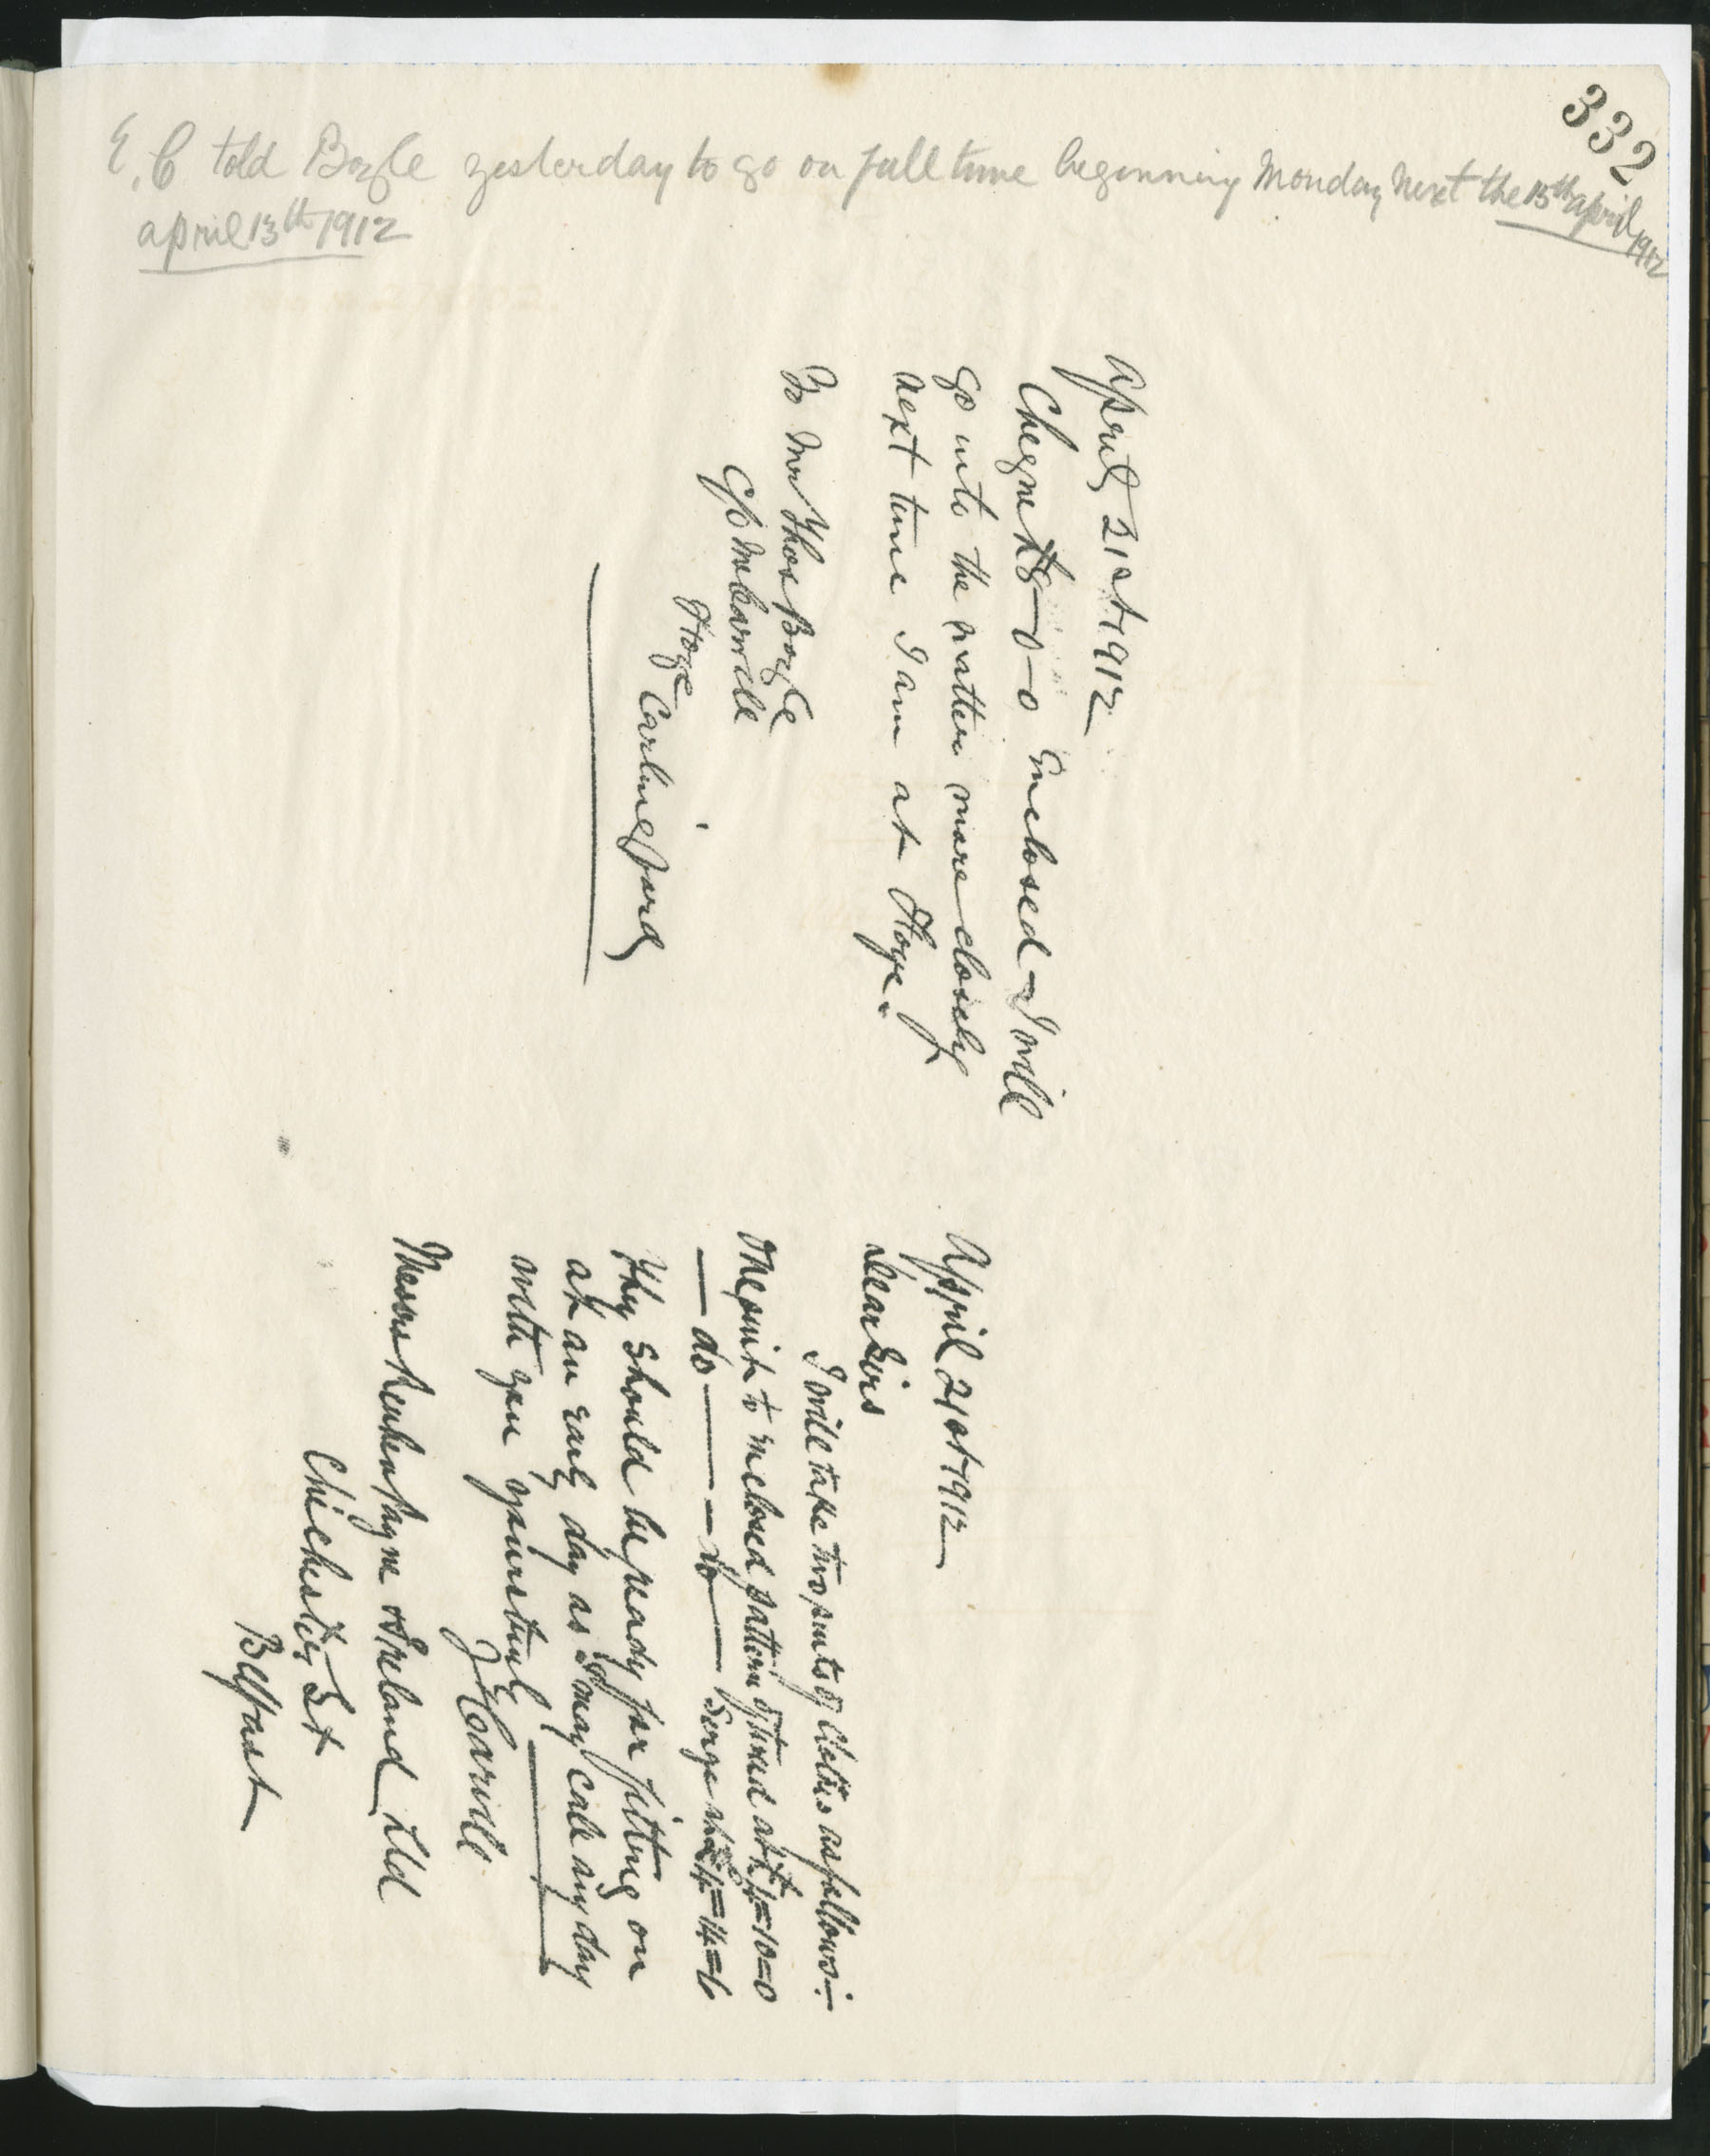 332
E. C told Boyle yesterday to go on full time beginning Monday next the 15th april 1912
april 13th 1912
April 21st 1912
Cheque £8-0-0 Enclosed - I will
go into the matter more closely
next time I am at Ffoye.
To Mr Thos Boyle
C/o McCarvill
Carlingford
April 21st 1912
Dear Sirs
I will take two suits of clothes as follows:-
One suit to enclosed pattern of tweed at £4=10=0
— do — — do — Serge at £4=14=6
They should be ready for fitting on
at an early day as I may call any day
with you yours truly
J Carvill
Messrs Payne & Ireland Ltd
Chichester St
Belfast